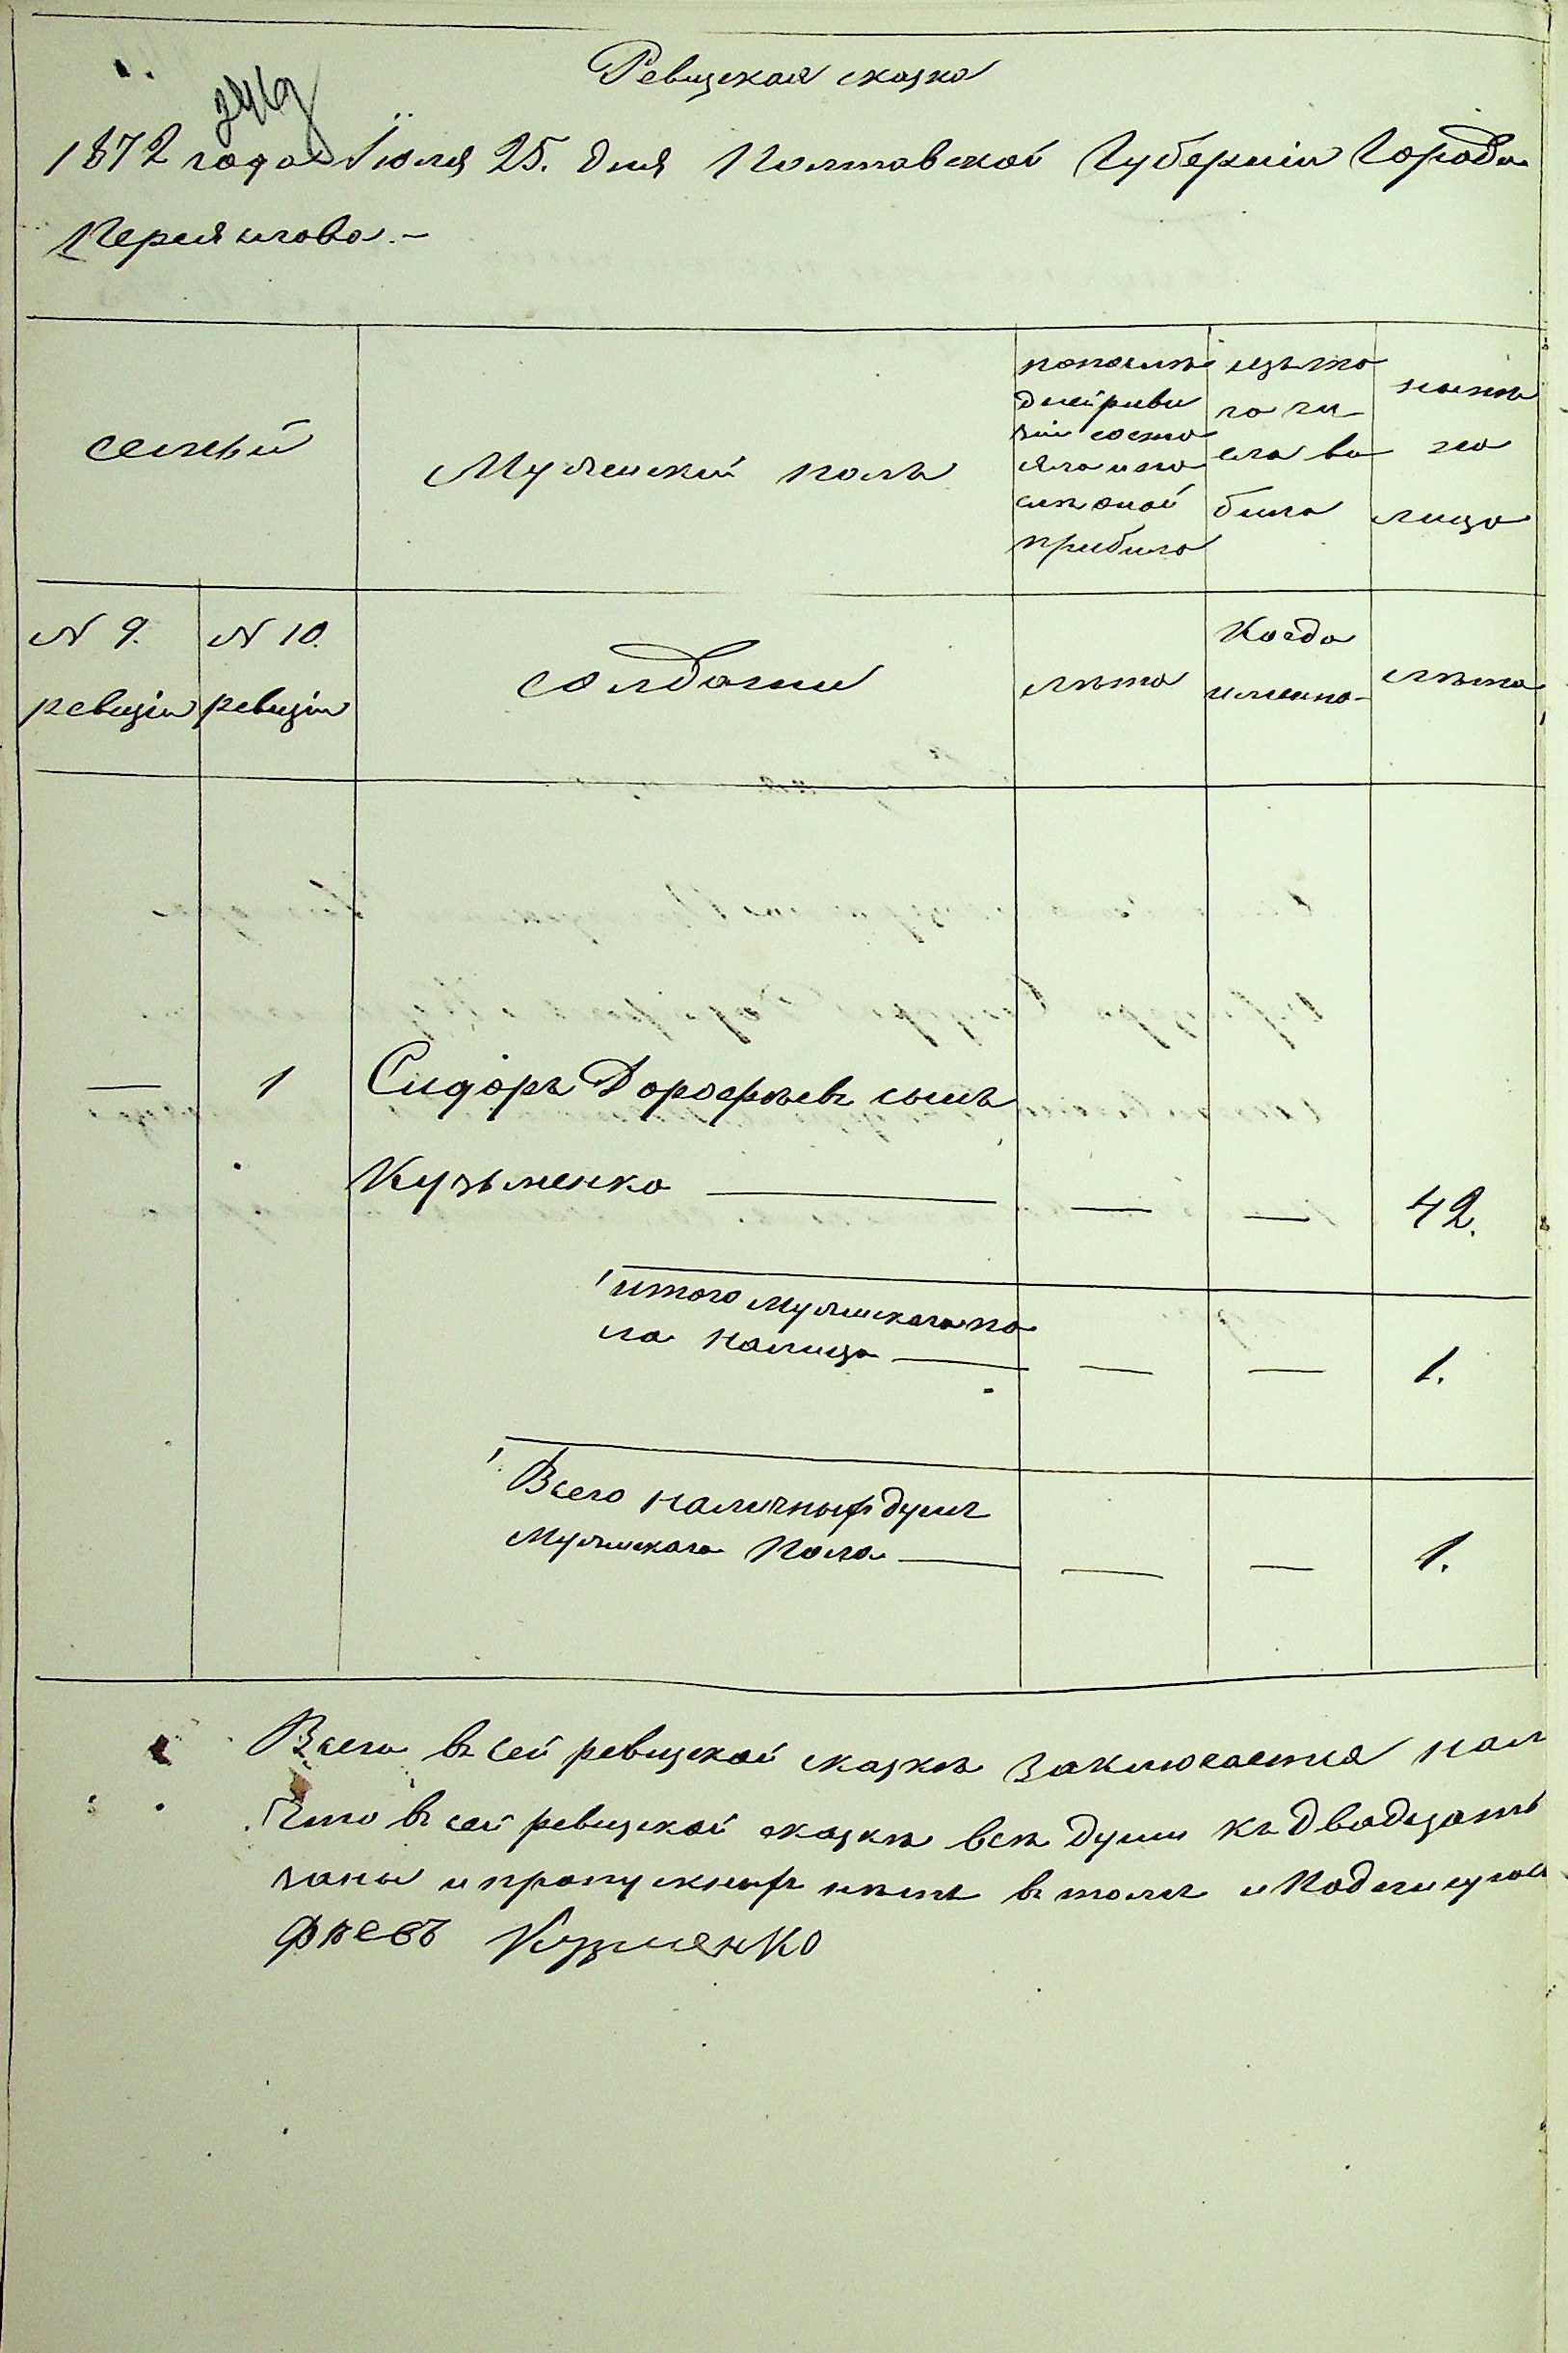 Ревизская сказка
1872 года Іюля 25. дня Полтавской Губерніи Города
Переяслова.-
семьи
Мужеский полъ
по послѣ
дней реви
зіи состо
яло и по
слѣ оной
прибыло
изъ то
го чи-
сла вы
было
нынѣ
на
лицо
N 9.
ревизіи
N 10.
ревизіи
солдаты
лѣта
Когда
именно-
лѣта
— 1 Сидоръ Дорофѣевъ сынъ
Кузьменко — — — 42.
итого мужескаго по
ла налицо — — — 1.
Всего наличныхъ душъ
Мужескаго Пола — — — 1.
Всего въ сей ревизской сказкѣ заключается нал
Что въ сей ревизской сказкѣ всѣ души къ двадцать
заны и пропускныхъ нѣтъ въ томъ и
фѣевъ Кузменко